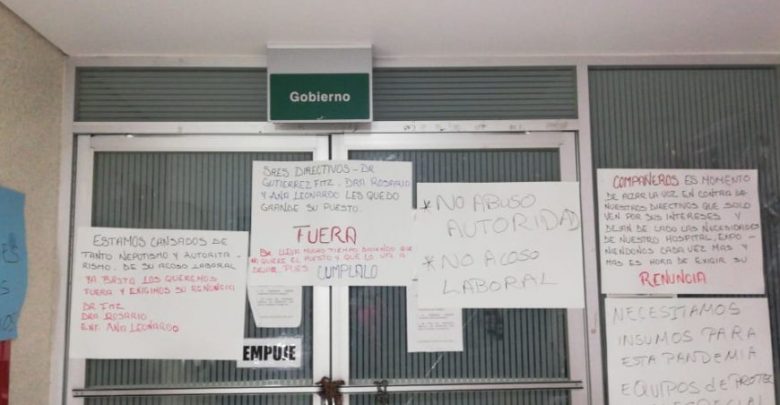 Gobierno
ESTAMOS CANSADOS DE
TANTO NEPOTISMO Y AUTORITA-
RISMO, DE SU ACOSO LABORAL
YA BASTO LOS QUEREMOS
FUERA Y EXIGIMOS SU RENUNCIA
DR FITZ
DRA ROSARIO
ENF. ANA LEONARDO
SRES DIRECTIVOS - DR
GUTIERREZ FITZ, DRA ROSARIO
Y ANA LEONARDO LES QUEDO
GRANDE SU PUESTO.
FUERA
DR LLEVA MUCHO TIEMPO DICIENDO QUE
NO QUIERE EL PUESTO Y QUE LO VA A
DEJAR, PUES CUMPLALO
* NO ABUSO
AUTORIDAD
* NO ACOSO
LABORAL
COMPAÑEROS ES MOMENTO
DE ALZAR LA VOZ EN CONTRA DE
NUESTROS DIRECTIVOS QUE SOLO
VEN POR SUS INTERESES Y
DEJAN DE LADO LAS NECESIDADES
DE NUESTRO HOSPITAL, EXPO-
NIENDONOS CADA VEZ MAS Y
MAS ES HORA DE EXIGIR SU
RENUNCIA
NECESITAMOS
INSUMOS PARA
ESTA PANDEMIA
EQUIPOS de PROTEC
ESPECIAL
EMPUJE